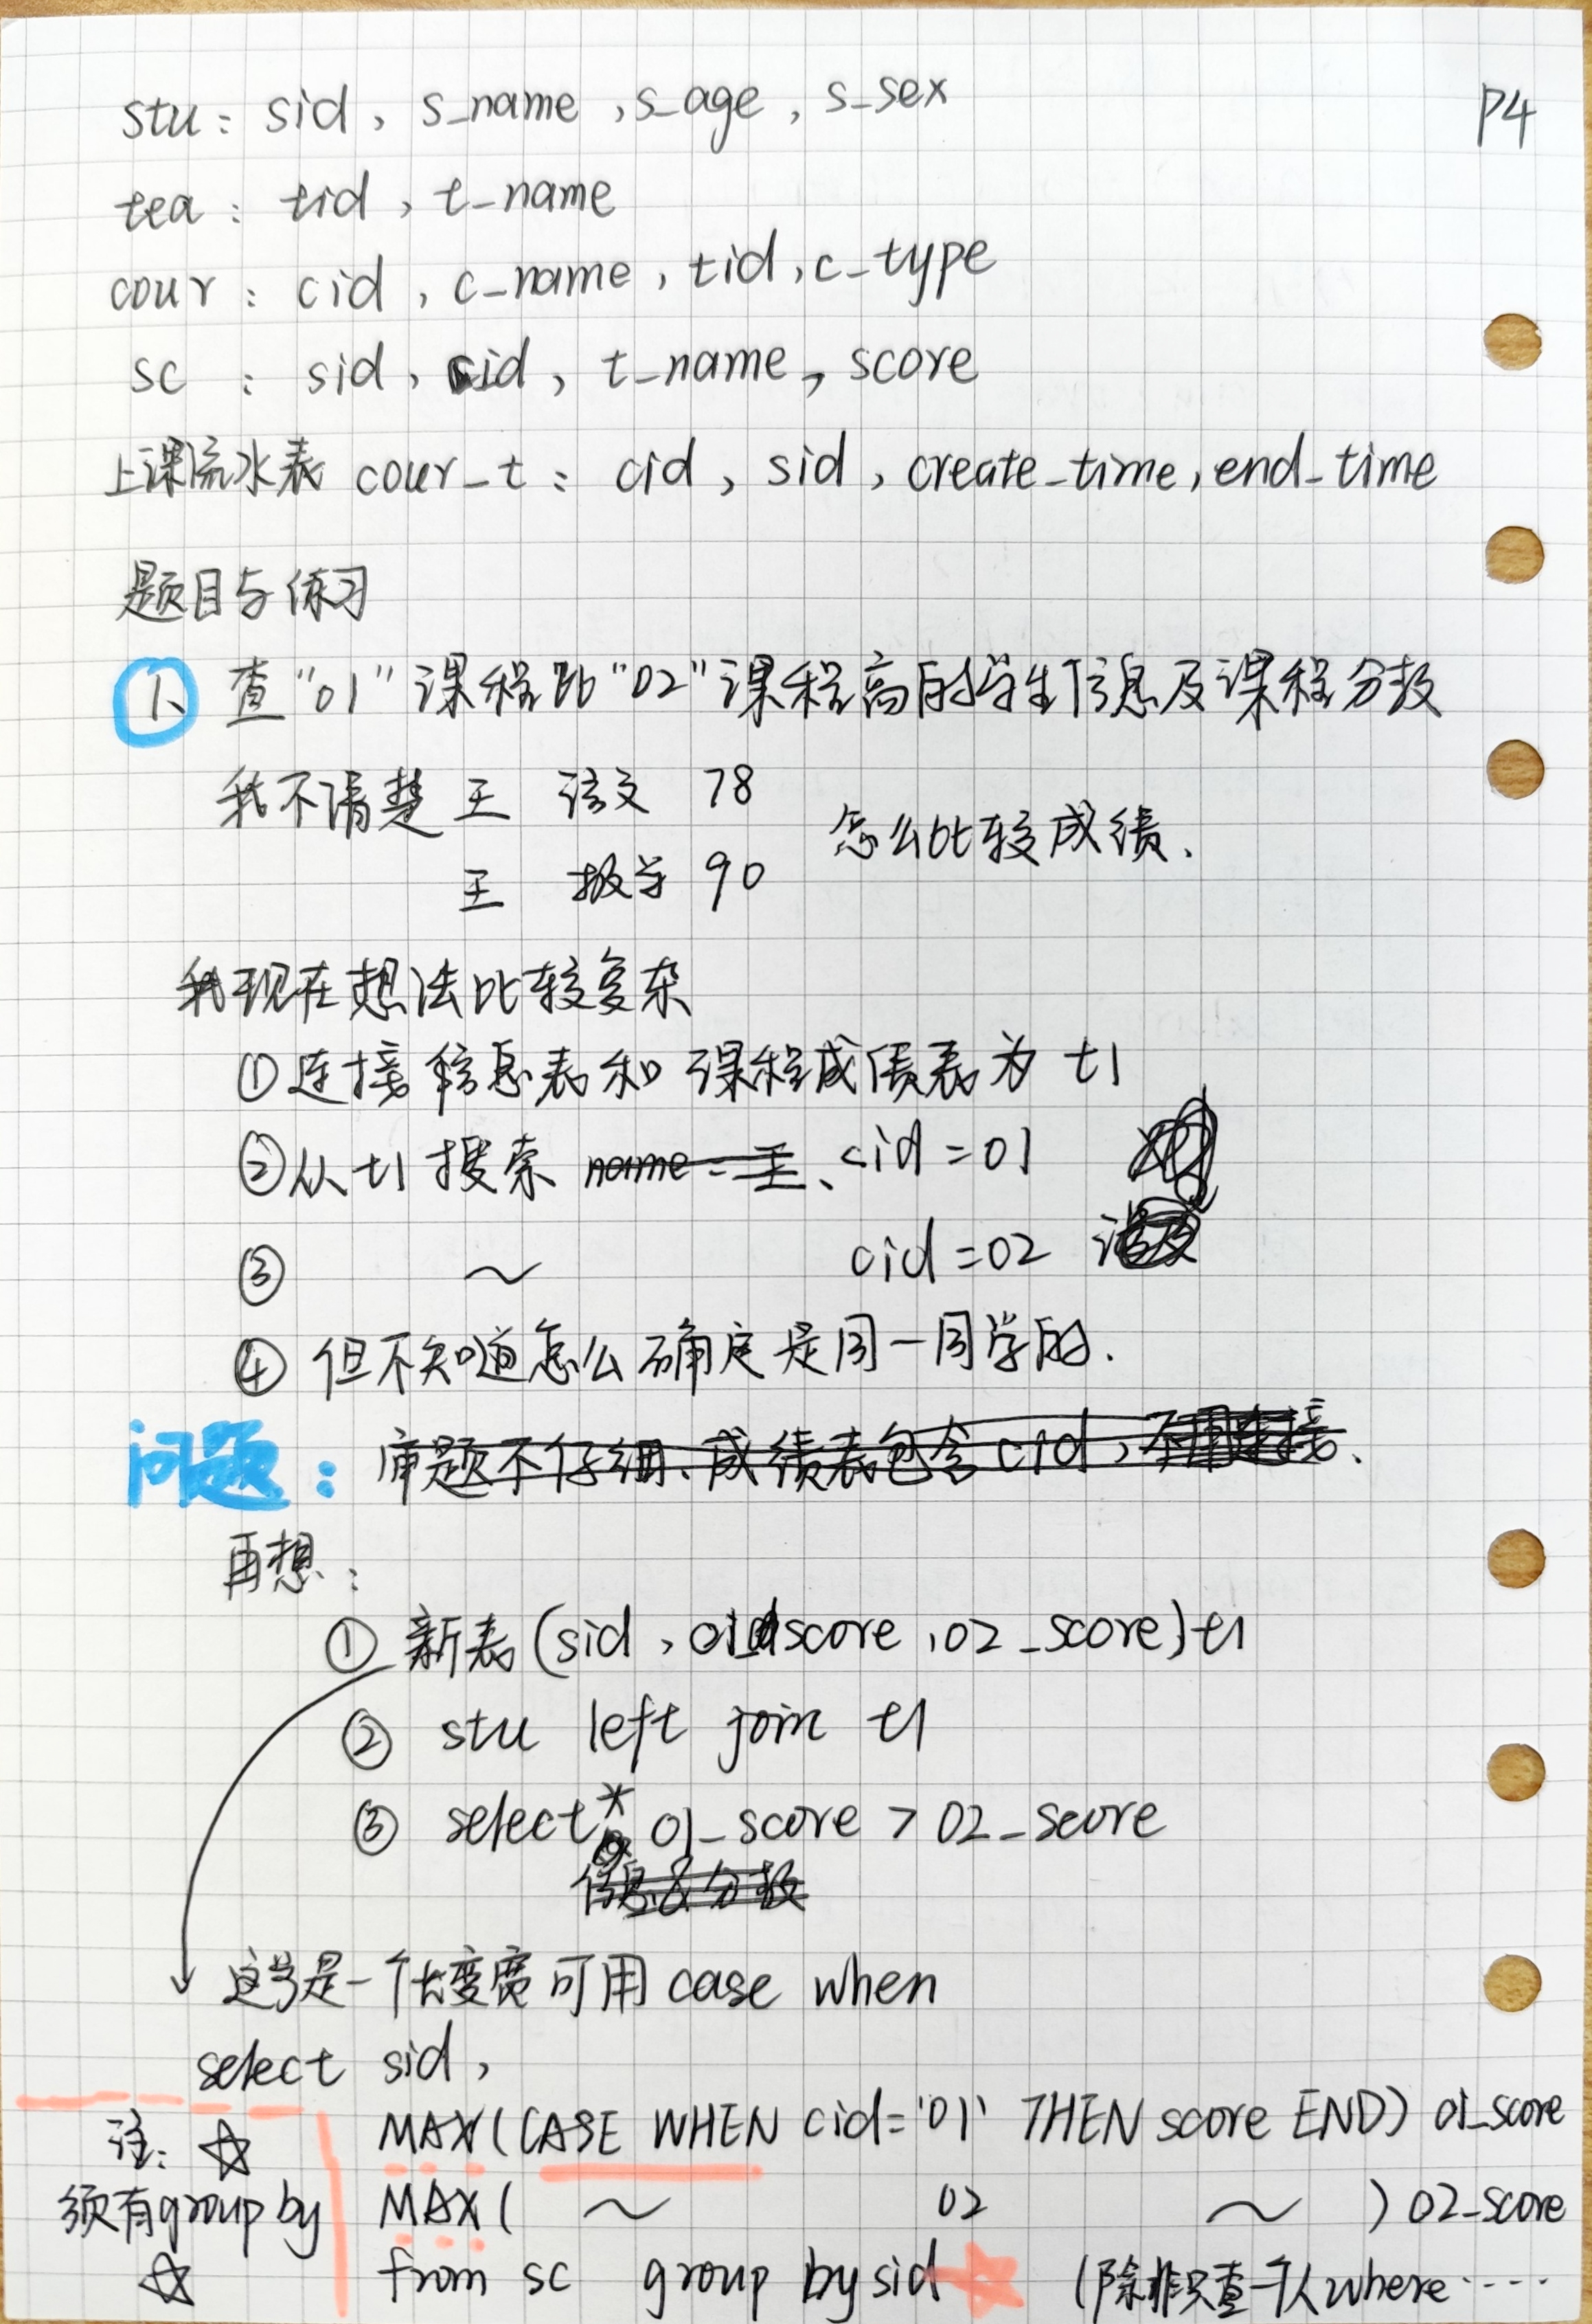 P4
stu: sid, s_name, s_age, s_sex
tea: tid, t_name
cour: cid, c_name, tid, c_type
sc: sid, cid, t_name, score
上课流水表 cour_t: cid, sid, create_time, end_time
题目与练习
1、查“01”课程比“02”课程高的学生信息及课程分数
我不清楚 王 语文 78
怎么比较成绩.
王 数学 90
我现在想法比较复杂
①连接信息表和课程成绩表为t1
②从t1搜索 name=王、cid=01
③ ～ cid=02
④但不知道怎么确定是同一同学的.
问题: 审题不仔细、成绩表包含cid, 不用连接.
再想:
① 新表(sid, 01_score, 02_score) t1
② stu left join t1
③ select * 01_score > 02_score
信息及分数
这是一个长变宽可用case when
select sid,
MAX(CASE WHEN cid='01' THEN score END) 01_score
注: ☆
须有group by
☆
MAX( ～ 02 ～ ) 02_score
from sc group by sid ★ (除非只查一个人where ····